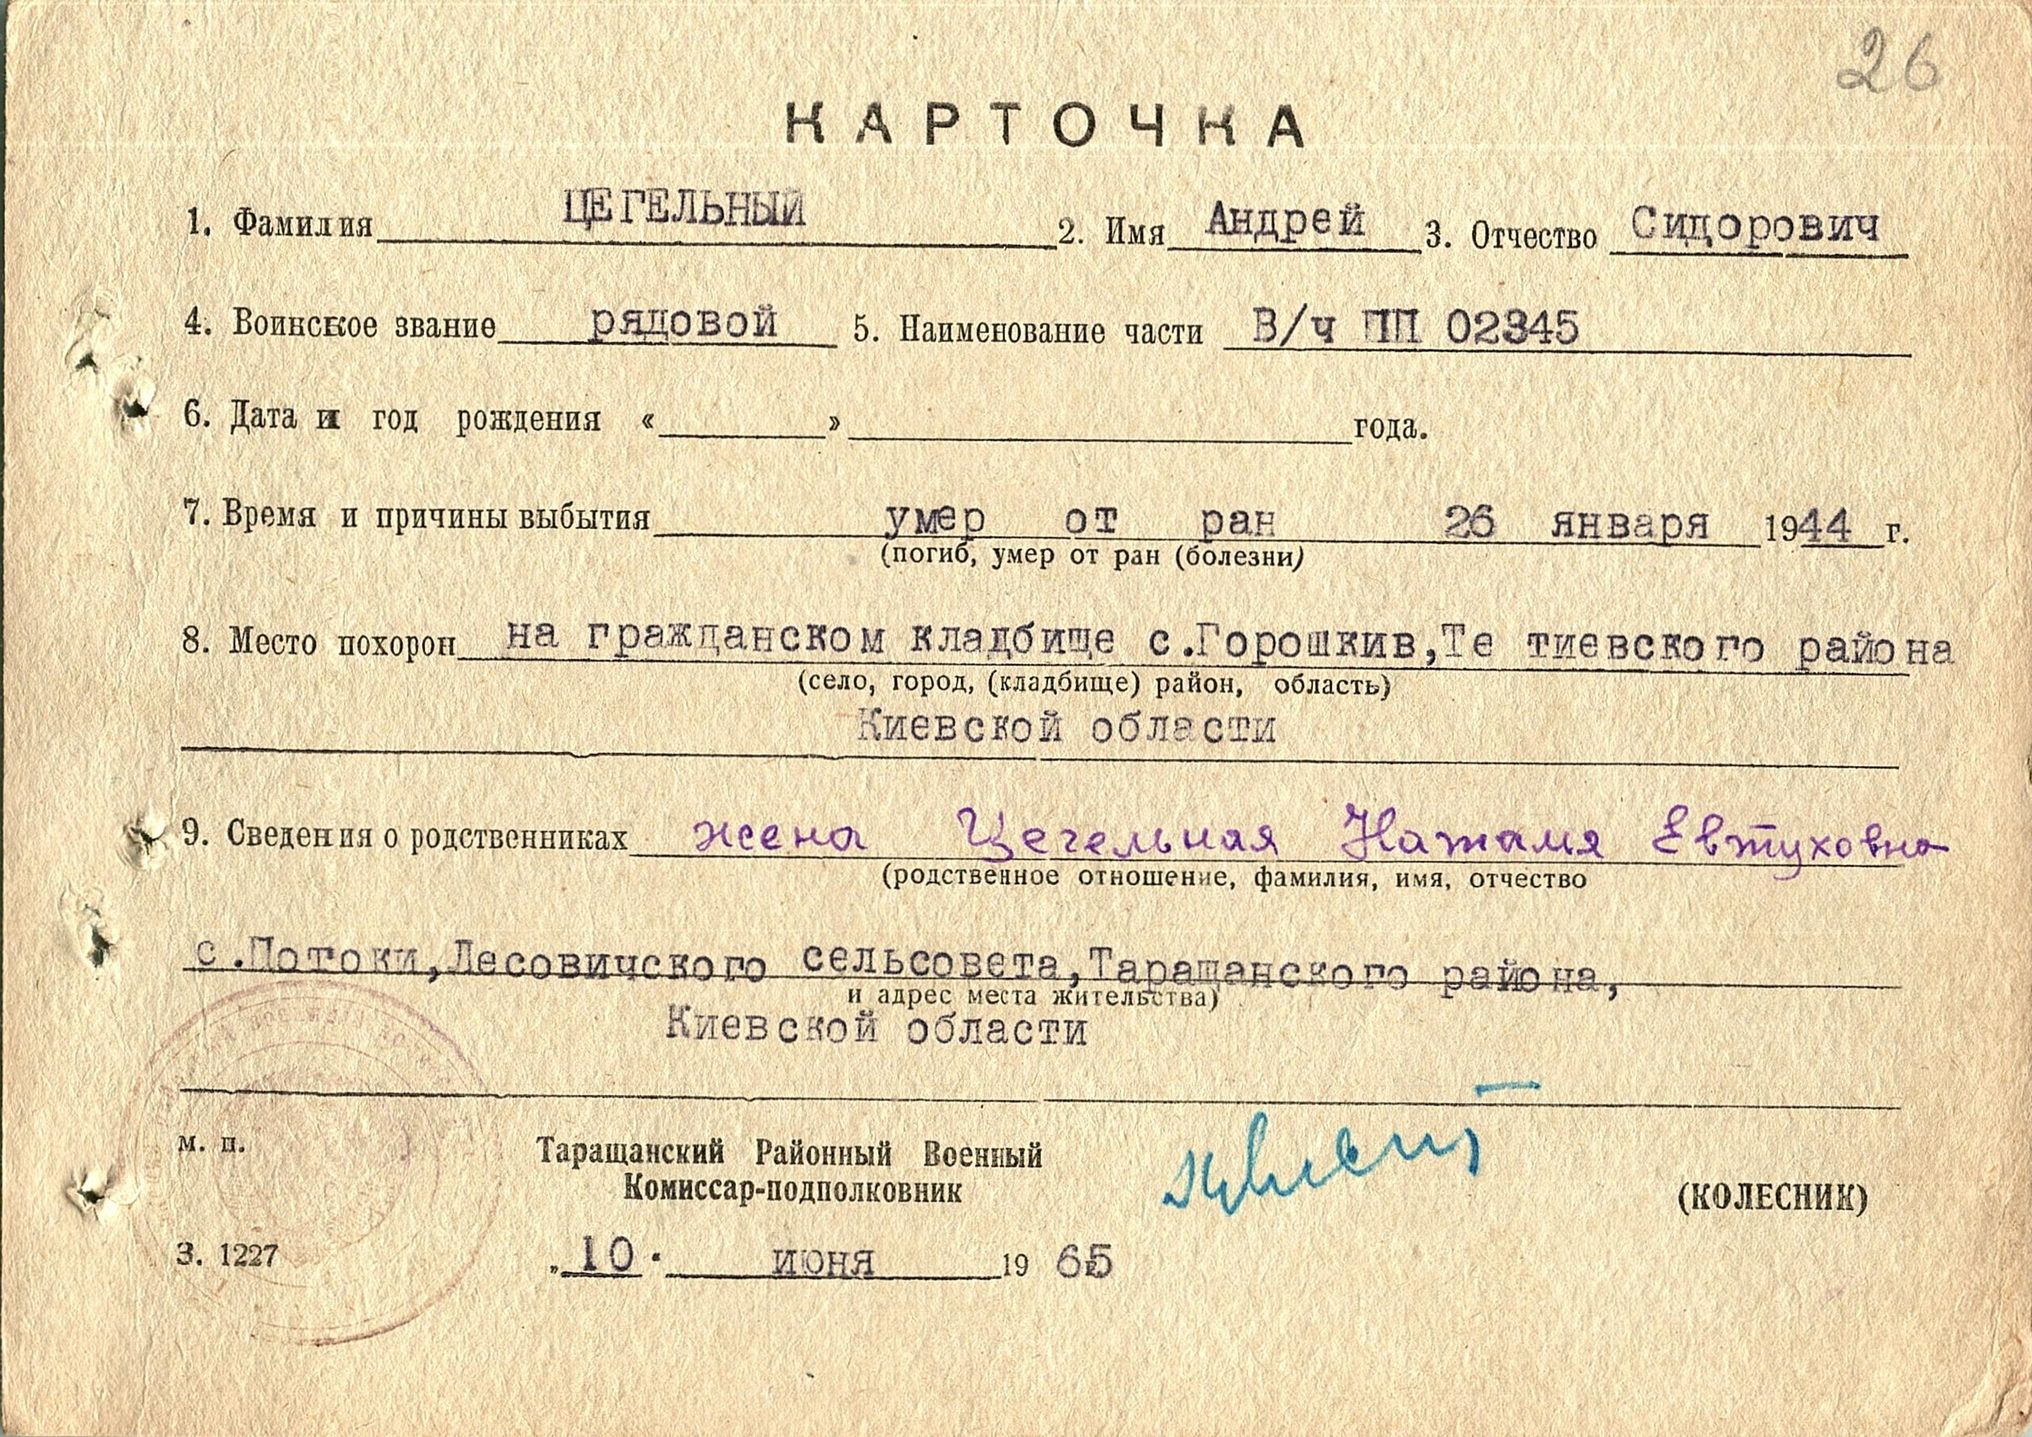 26
КАРТОЧКА
1. Фамилия ЦЕГЕЛЬНЫЙ 2. Имя Андрей 3. Отчество Сидорович
4. Воинское звание рядовой 5. Наименование части В/ч ПП 02345
6. Дата и год рождения « » года.
7. Время и причины выбытия умер от ран 26 января 1944 г.
(погиб, умер от ран (болезни)
8. Место похорон на гражданском кладбище с.Горошкив,Те тиевского района
(село, город, (кладбище) район, область)
Киевской области
9. Сведения о родственниках жена Цегельная Наталия Евтуховна
(родственное отношение, фамилия, имя, отчество
с.Потоки,Лесовичского сельсовета,Таращанского района,
и адрес места жительства)
Киевской области
м. п. Таращанский Районный Военный
Комиссар-подполковник (КОЛЕСНИК)
З. 1227 „10" июня 1965